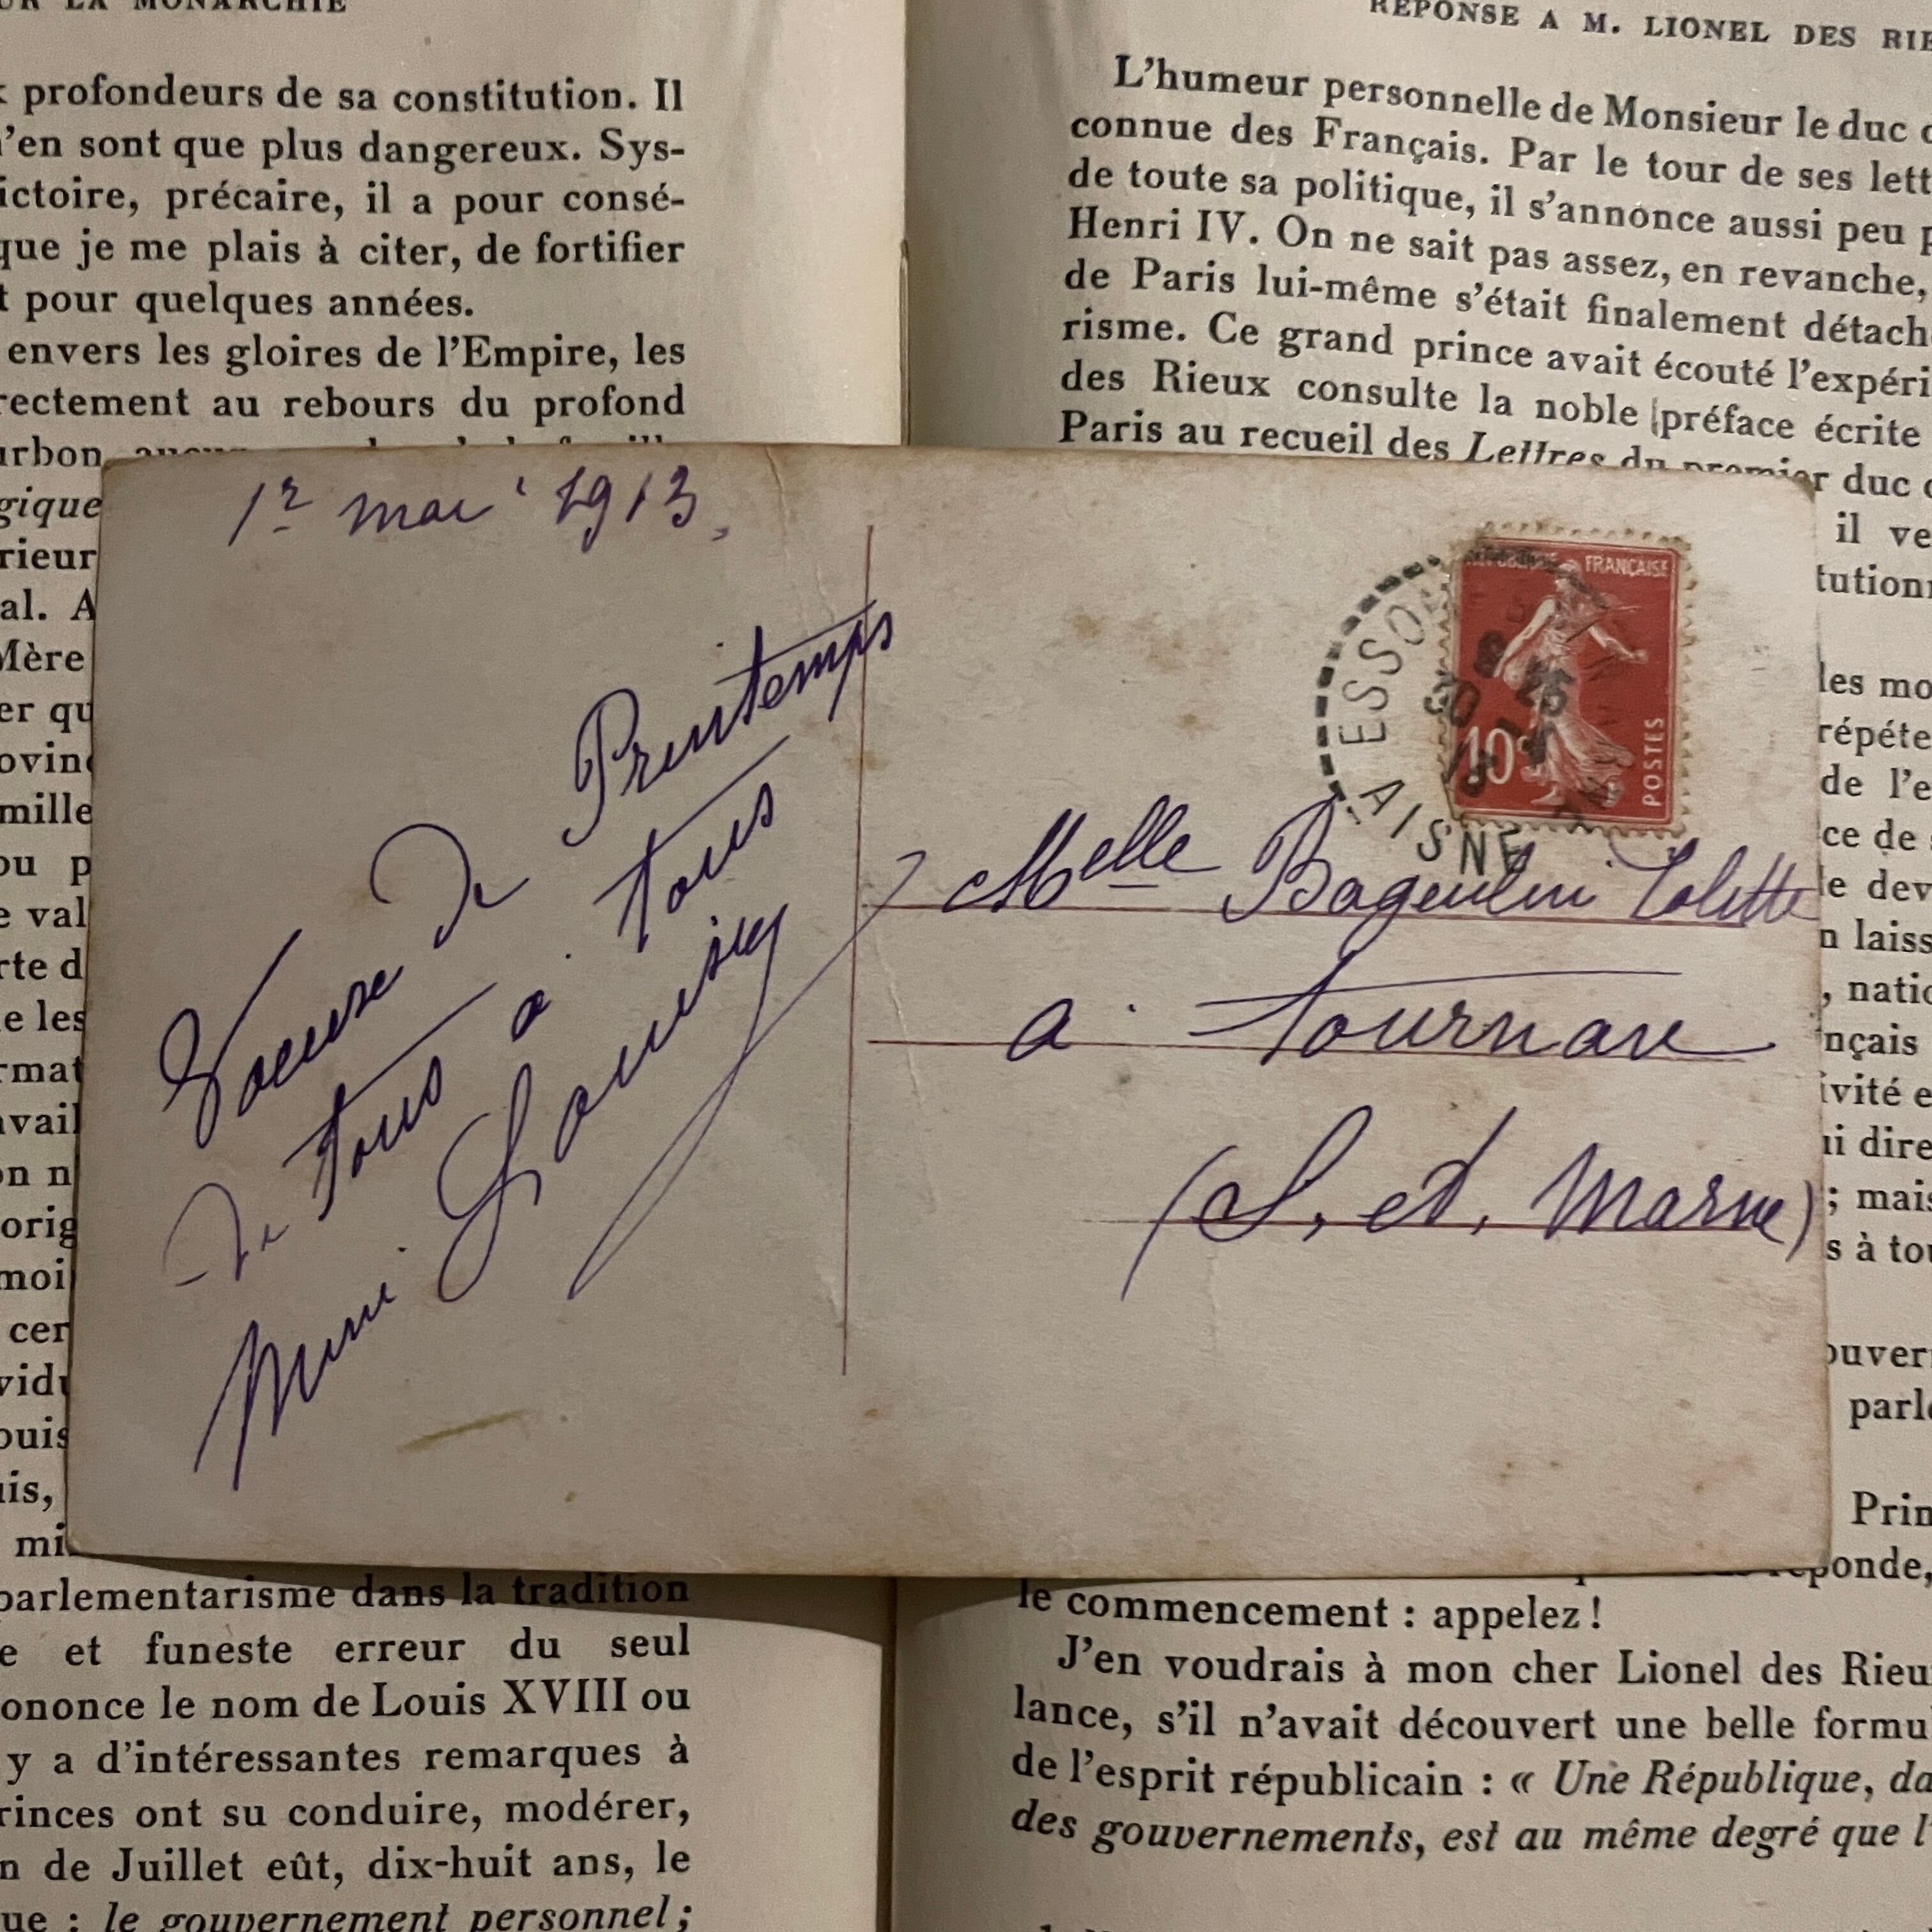 LA MONARCHIE
profondeurs de sa constitution. Il
n'en sont que plus dangereux. Sys-
ictoire, précaire, il a pour consé-
que je me plais à citer, de fortifier
t pour quelques années.
envers les gloires de l'Empire, les
rectement au rebours du profond
urbon
gique
rieur
al. A
Mère
er qu
ovin
mille
ou p
e val
rte d
e les
rmat
avail
on n
orig
moi
cer
vidu
ouis
uis,
mi
parlementarisme dans la tradition
e et funeste erreur du seul
ononce le nom de Louis XVIII ou
y a d'intéressantes remarques à
rinces ont su conduire, modérer,
n de Juillet eût, dix-huit ans, le
ue : le gouvernement personnel;
RÉPONSE A M. LIONEL DES RIE
L'humeur personnelle de Monsieur le duc d
connue des Français. Par le tour de ses lett
de toute sa politique, il s'annonce aussi peu p
Henri IV. On ne sait pas assez, en revanche,
de Paris lui-même s'était finalement détach
risme. Ce grand prince avait écouté l'expéri
des Rieux consulte la noble préface écrite
Paris au recueil des Lettres du premier duc d
il ve
tutionn
les mo
répéte
de l'e
ce de
e dev
n laiss
, natio
nçais
ivité e
ui dire
; mais
s à tou
ouver
parle
Prin
réponde,
le commencement : appelez !
J'en voudrais à mon cher Lionel des Rieu
lance, s'il n'avait découvert une belle formul
de l'esprit républicain : « Une République, da
des gouvernements, est au même degré que l'
1r mai 1913,
de Printemps
de tous à tous
Mimi
RÉPUBLIQUE FRANÇAISE
10c
POSTES
AISNE
Melle Colette
a Tournan
(S. et. Marne)